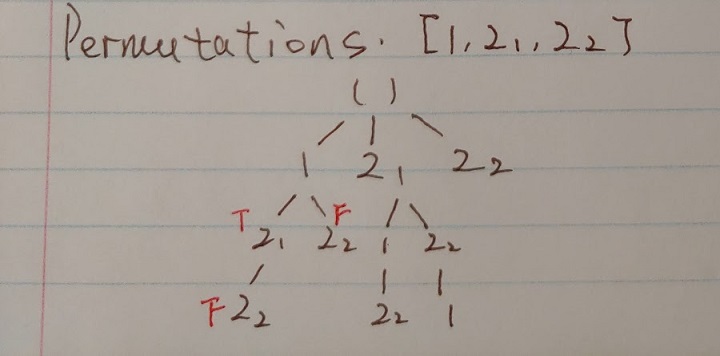 Permutations. [1, 2₁, 2₂]
( )
1 2₁ 2₂
T 2₁ 2₂ F 1 2₂
F 2₂ 2₂ 1